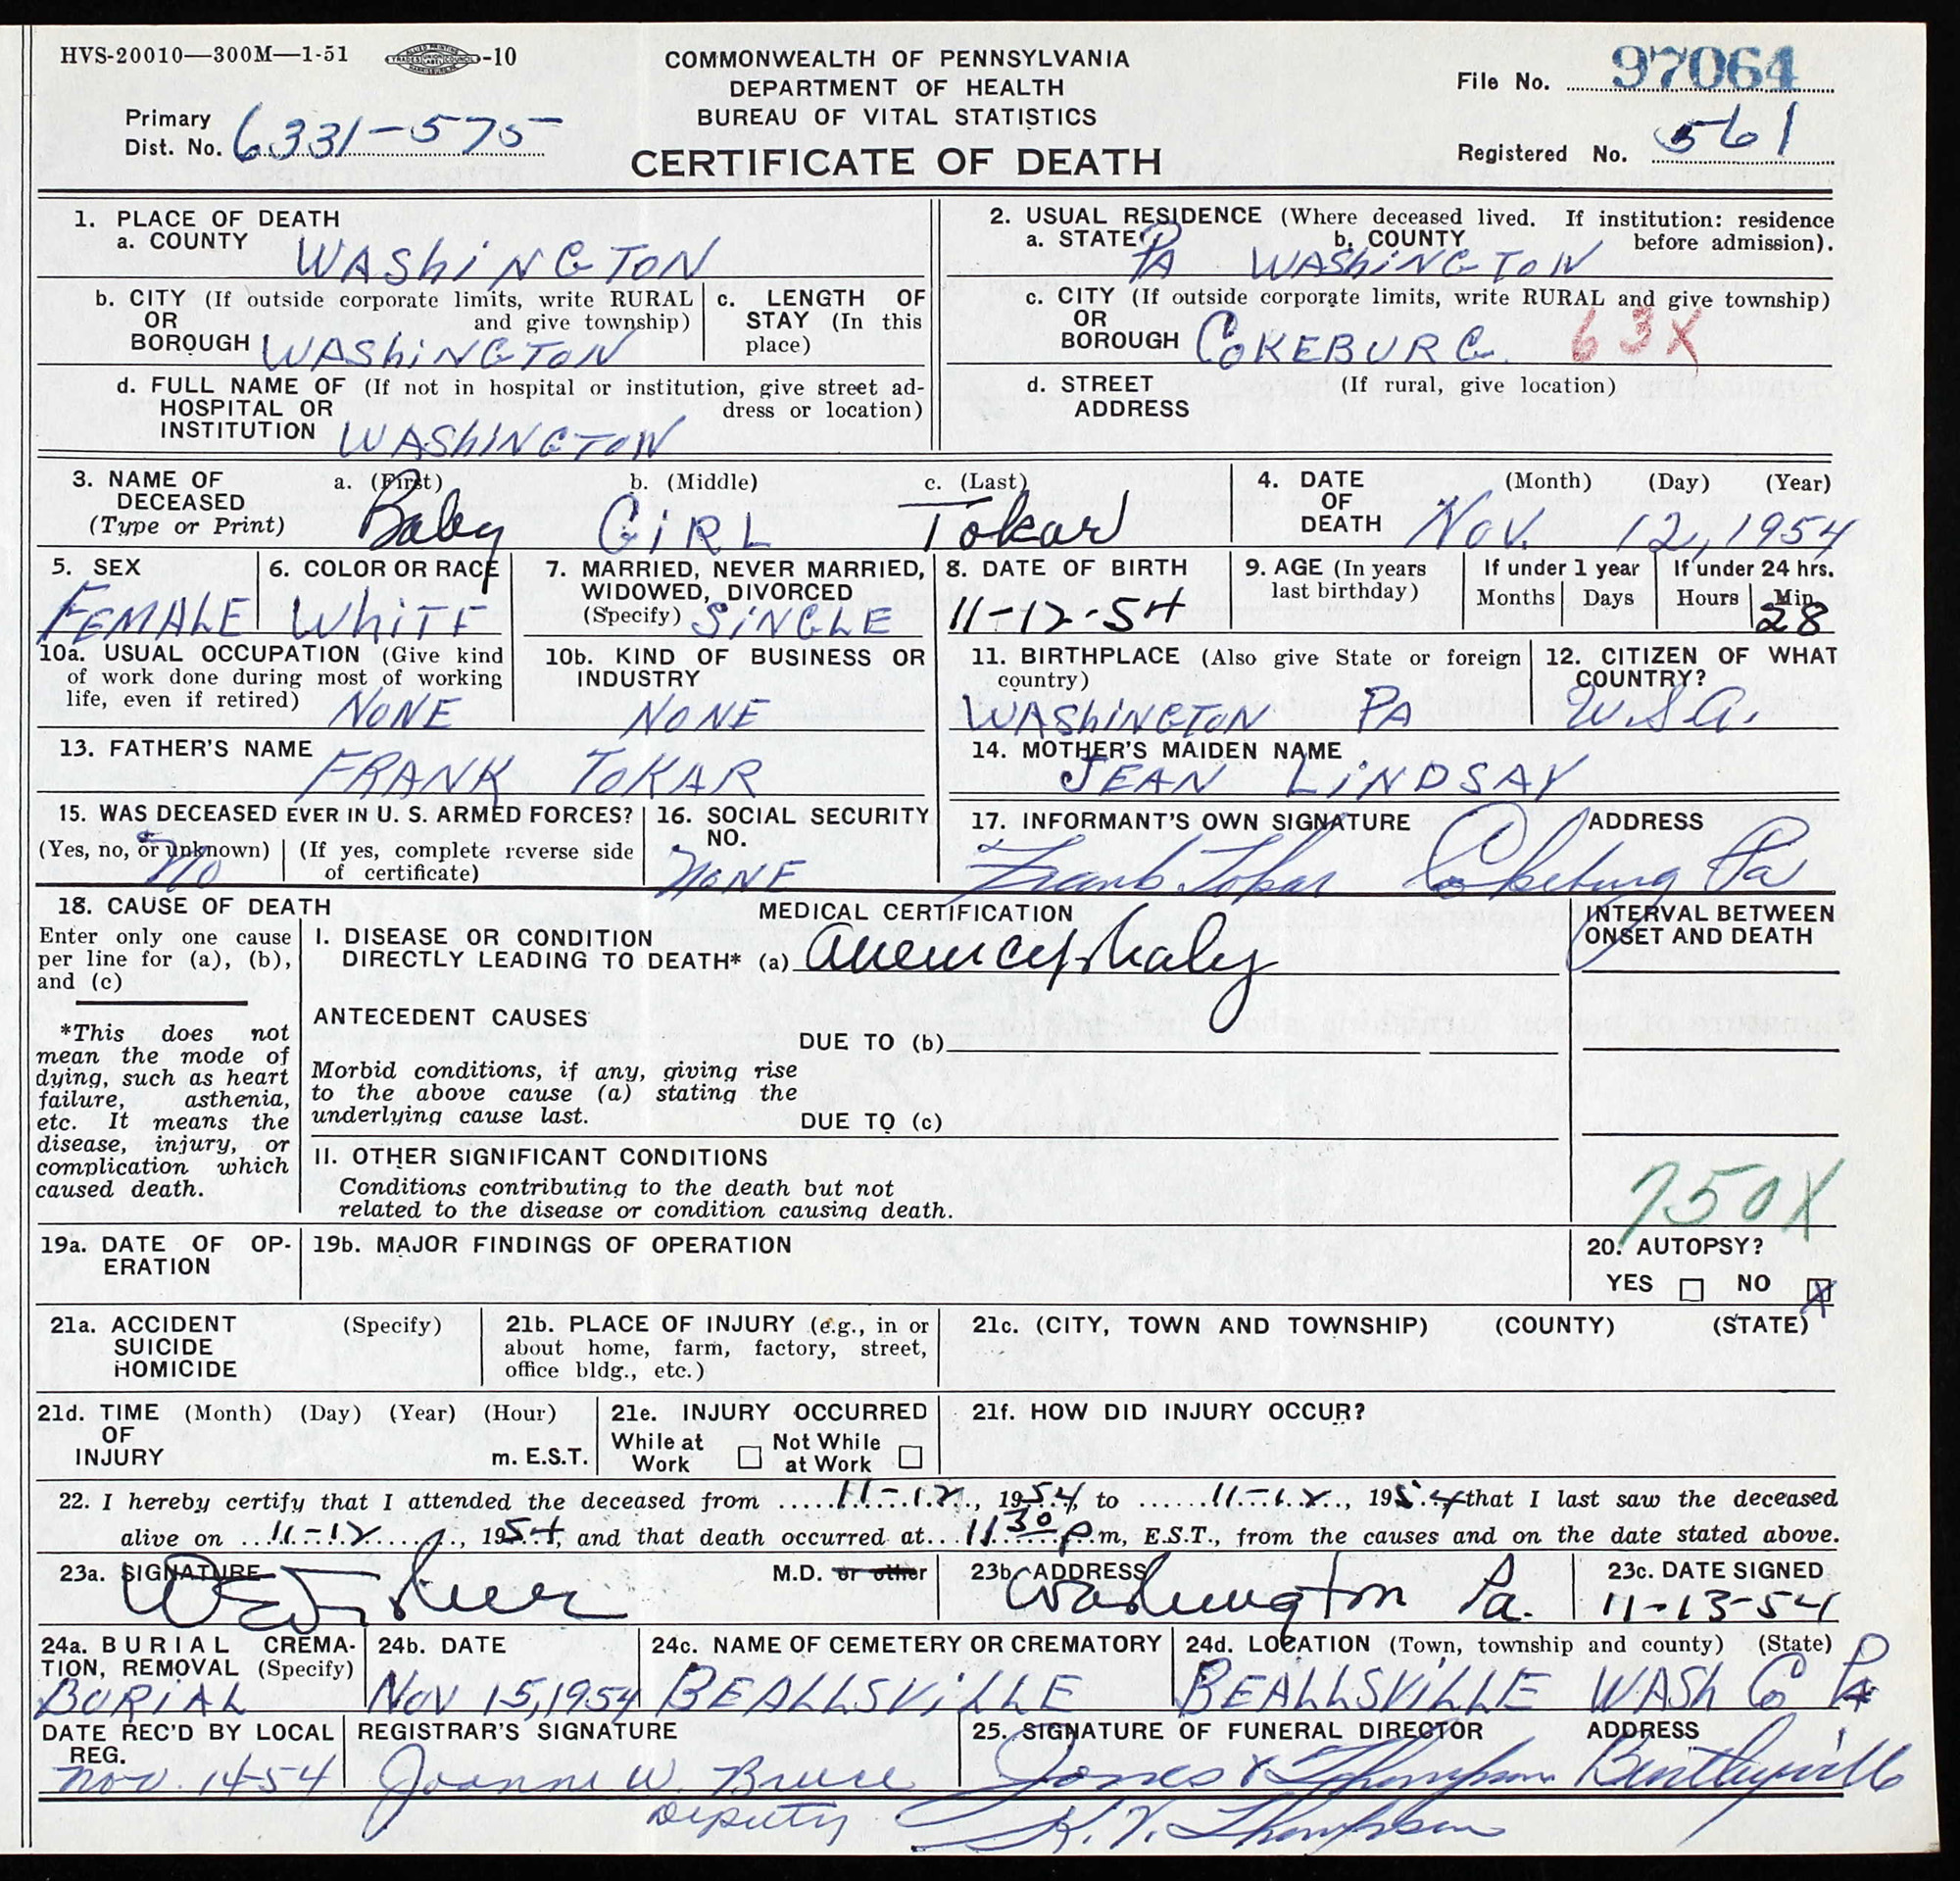 HVS-20010—300M—1-51 -10
COMMONWEALTH OF PENNSYLVANIA
DEPARTMENT OF HEALTH
BUREAU OF VITAL STATISTICS
CERTIFICATE OF DEATH
File No. 97064
Primary
Dist. No. 6331-575
Registered No. 561
1. PLACE OF DEATH
a. COUNTY WASHINGTON
2. USUAL RESIDENCE (Where deceased lived. If institution: residence
before admission).
a. STATE PA b. COUNTY WASHINGTON
b. CITY (If outside corporate limits, write RURAL
OR and give township)
BOROUGH WASHINGTON
c. LENGTH OF
STAY (In this
place)
c. CITY (If outside corporate limits, write RURAL and give township)
OR
BOROUGH COKEBURG 63X
d. FULL NAME OF (If not in hospital or institution, give street ad-
HOSPITAL OR dress or location)
INSTITUTION WASHINGTON
d. STREET (If rural, give location)
ADDRESS
3. NAME OF
DECEASED
(Type or Print)
a. (First) b. (Middle) c. (Last)
Baby GIRL Tokar
4. DATE
OF
DEATH
(Month) (Day) (Year)
Nov. 12, 1954
5. SEX
FEMALE
6. COLOR OR RACE
WHITE
7. MARRIED, NEVER MARRIED,
WIDOWED, DIVORCED
(Specify) SINGLE
8. DATE OF BIRTH
11-12-54
9. AGE (In years
last birthday)
If under 1 year
Months Days
If under 24 hrs.
Hours Min.
28
10a. USUAL OCCUPATION (Give kind
of work done during most of working
life, even if retired) NONE
10b. KIND OF BUSINESS OR
INDUSTRY
NONE
11. BIRTHPLACE (Also give State or foreign
country)
WASHINGTON PA
12. CITIZEN OF WHAT
COUNTRY?
U.S.A.
13. FATHER'S NAME
FRANK TOKAR
14. MOTHER'S MAIDEN NAME
JEAN LINDSAY
15. WAS DECEASED EVER IN U. S. ARMED FORCES?
(Yes, no, or unknown) (If yes, complete reverse side
of certificate)
No
16. SOCIAL SECURITY
NO.
NONE
17. INFORMANT'S OWN SIGNATURE ADDRESS
Frank Tokar Cokeburg Pa
18. CAUSE OF DEATH
Enter only one cause
per line for (a), (b),
and (c)
*This does not
mean the mode of
dying, such as heart
failure, asthenia,
etc. It means the
disease, injury, or
complication which
caused death.
MEDICAL CERTIFICATION
I. DISEASE OR CONDITION
DIRECTLY LEADING TO DEATH* (a) Anencephaly
ANTECEDENT CAUSES
DUE TO (b)
Morbid conditions, if any, giving rise
to the above cause (a) stating the
underlying cause last.
DUE TO (c)
II. OTHER SIGNIFICANT CONDITIONS
Conditions contributing to the death but not
related to the disease or condition causing death.
INTERVAL BETWEEN
ONSET AND DEATH
750X
19a. DATE OF OP-
ERATION
19b. MAJOR FINDINGS OF OPERATION
20. AUTOPSY?
YES NO X
21a. ACCIDENT (Specify)
SUICIDE
HOMICIDE
21b. PLACE OF INJURY (e.g., in or
about home, farm, factory, street,
office bldg., etc.)
21c. (CITY, TOWN AND TOWNSHIP) (COUNTY) (STATE)
21d. TIME (Month) (Day) (Year) (Hour)
OF
INJURY m. E.S.T.
21e. INJURY OCCURRED
While at Work Not While at Work
21f. HOW DID INJURY OCCUR?
22. I hereby certify that I attended the deceased from 11-12, 1954, to 11-12, 1954 that I last saw the deceased
alive on 11-12, 1954, and that death occurred at 11 30 p m, E.S.T., from the causes and on the date stated above.
23a. SIGNATURE M.D. or other
23b. ADDRESS
Washington Pa.
23c. DATE SIGNED
11-13-54
24a. BURIAL CREMA-
TION, REMOVAL (Specify)
BURIAL
24b. DATE
Nov 15, 1954
24c. NAME OF CEMETERY OR CREMATORY
BEALLSVILLE
24d. LOCATION (Town, township and county) (State)
BEALLSVILLE WASH Co PA
DATE REC'D BY LOCAL
REG.
Nov. 14-54
REGISTRAR'S SIGNATURE
Joanne W. Bruce
Deputy
25. SIGNATURE OF FUNERAL DIRECTOR ADDRESS
Jones & Thompson Bentleyville
K. V. Thompson